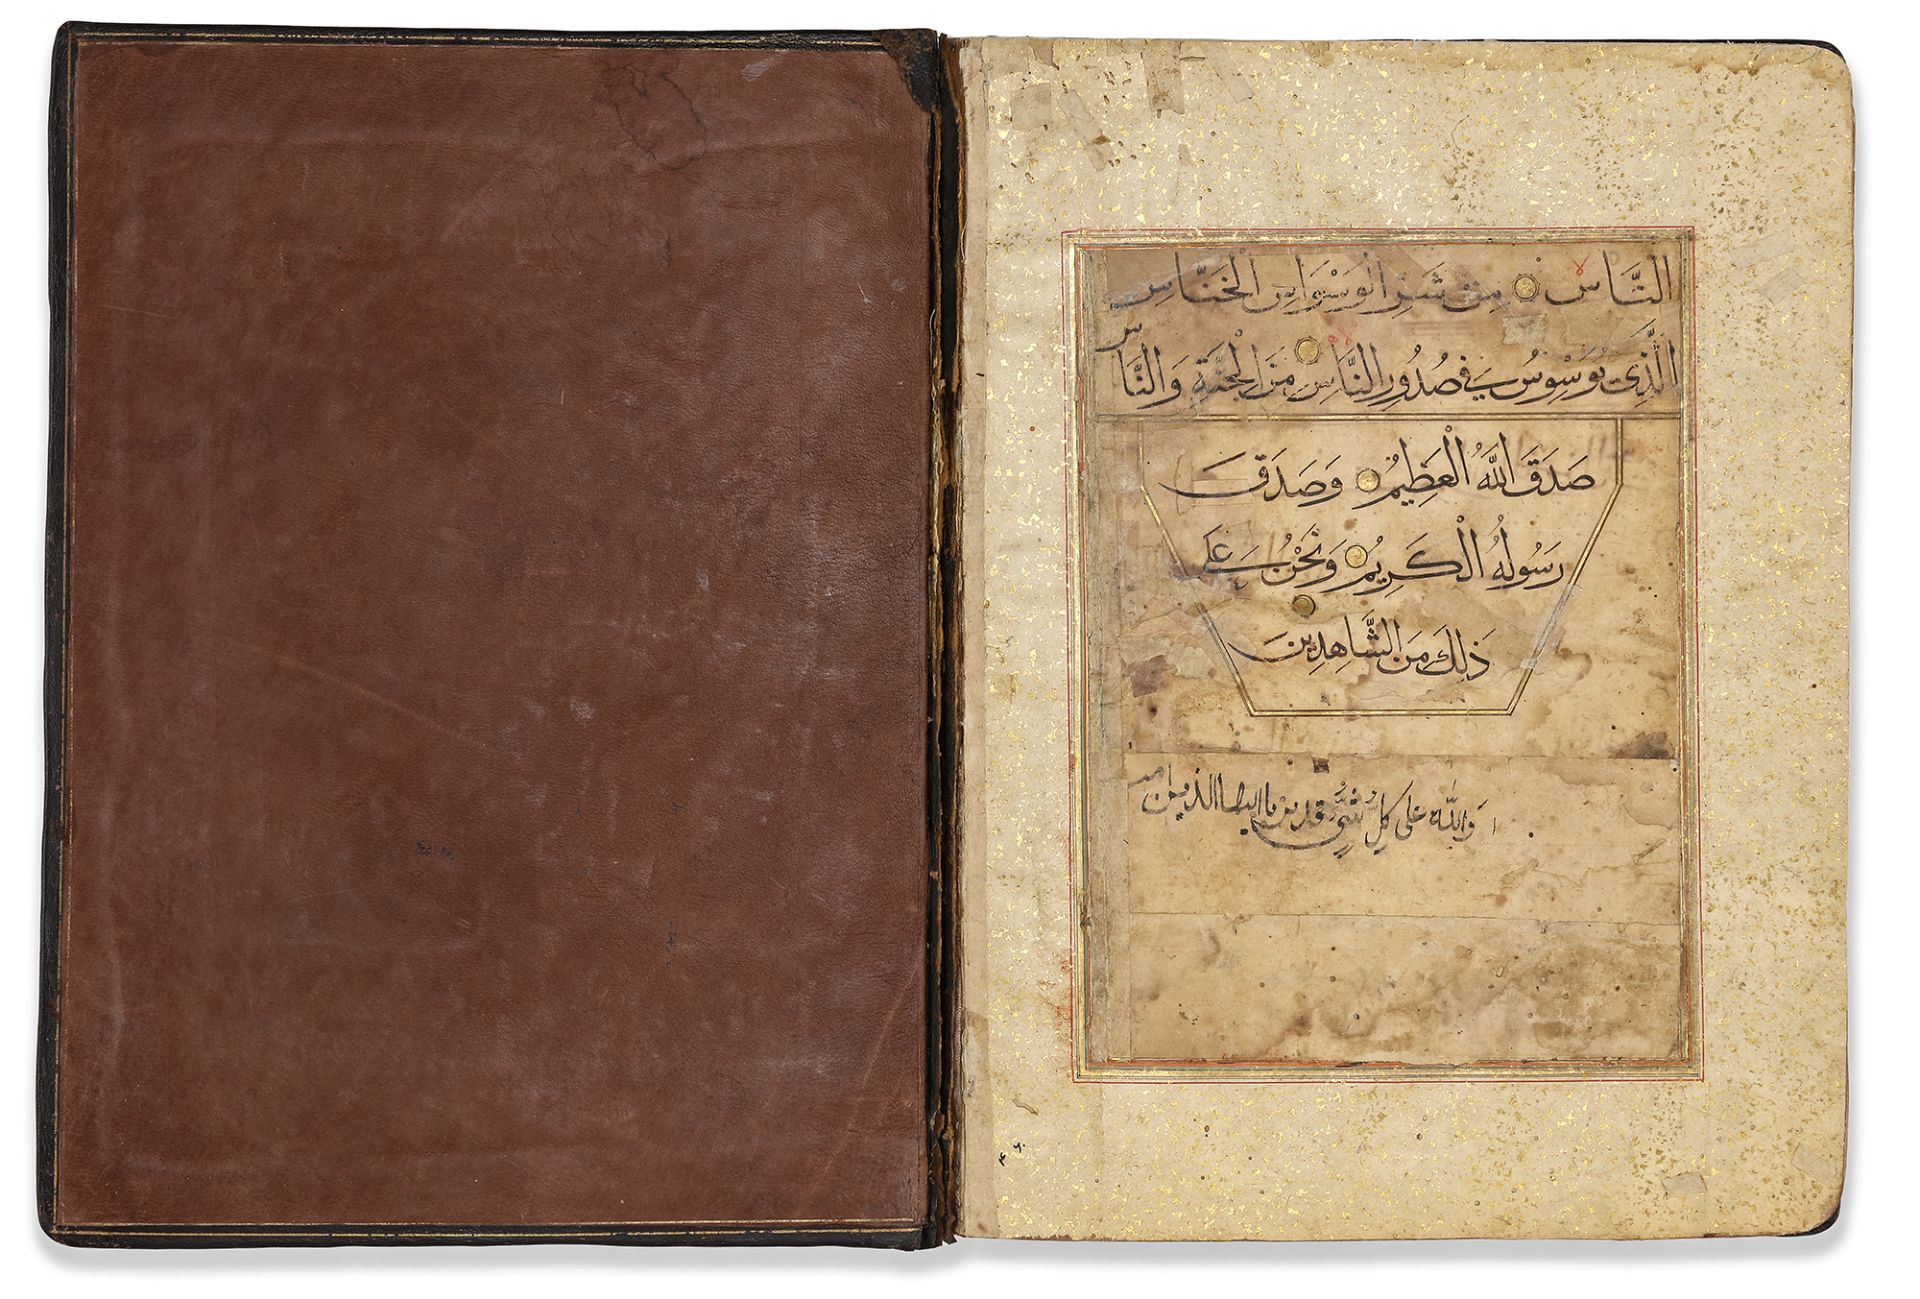 النَّاسِ مِنْ شَرِّ الْوَسْوَاسِ الْخَنَّاسِ
الَّذِي يُوَسْوِسُ فِي صُدُورِ النَّاسِ مِنَ الْجِنَّةِ وَالنَّاسِ
صَدَقَ اللَّهُ الْعَظِيمُ وَصَدَقَ
رَسُولُهُ الْكَرِيمُ وَنَحْنُ عَلَى
ذَلِكَ مِنَ الشَّاهِدِينَ
وَاللّه على كُلِّ شَيْءٍ قدير يا ايها الذين